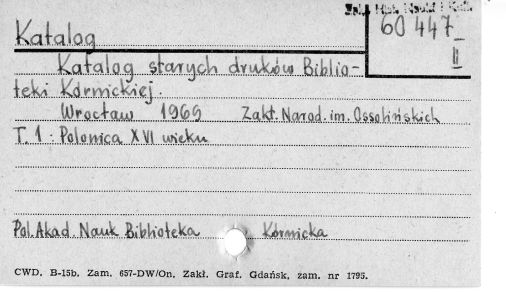 Zakł. Hist. Nauki i Tech.
60 447
II
Katalog
Katalog starych druków Biblio-
teki Kórnickiej.
Wrocław 1969 Zakł. Narod. im. Ossolińskich
T. 1 : Polonica XVI wieku
Pol. Akad. Nauk Biblioteka Kórnicka
CWD. B-15b. Zam. 657-DW/On. Zakł. Graf. Gdańsk, zam. nr 1795.